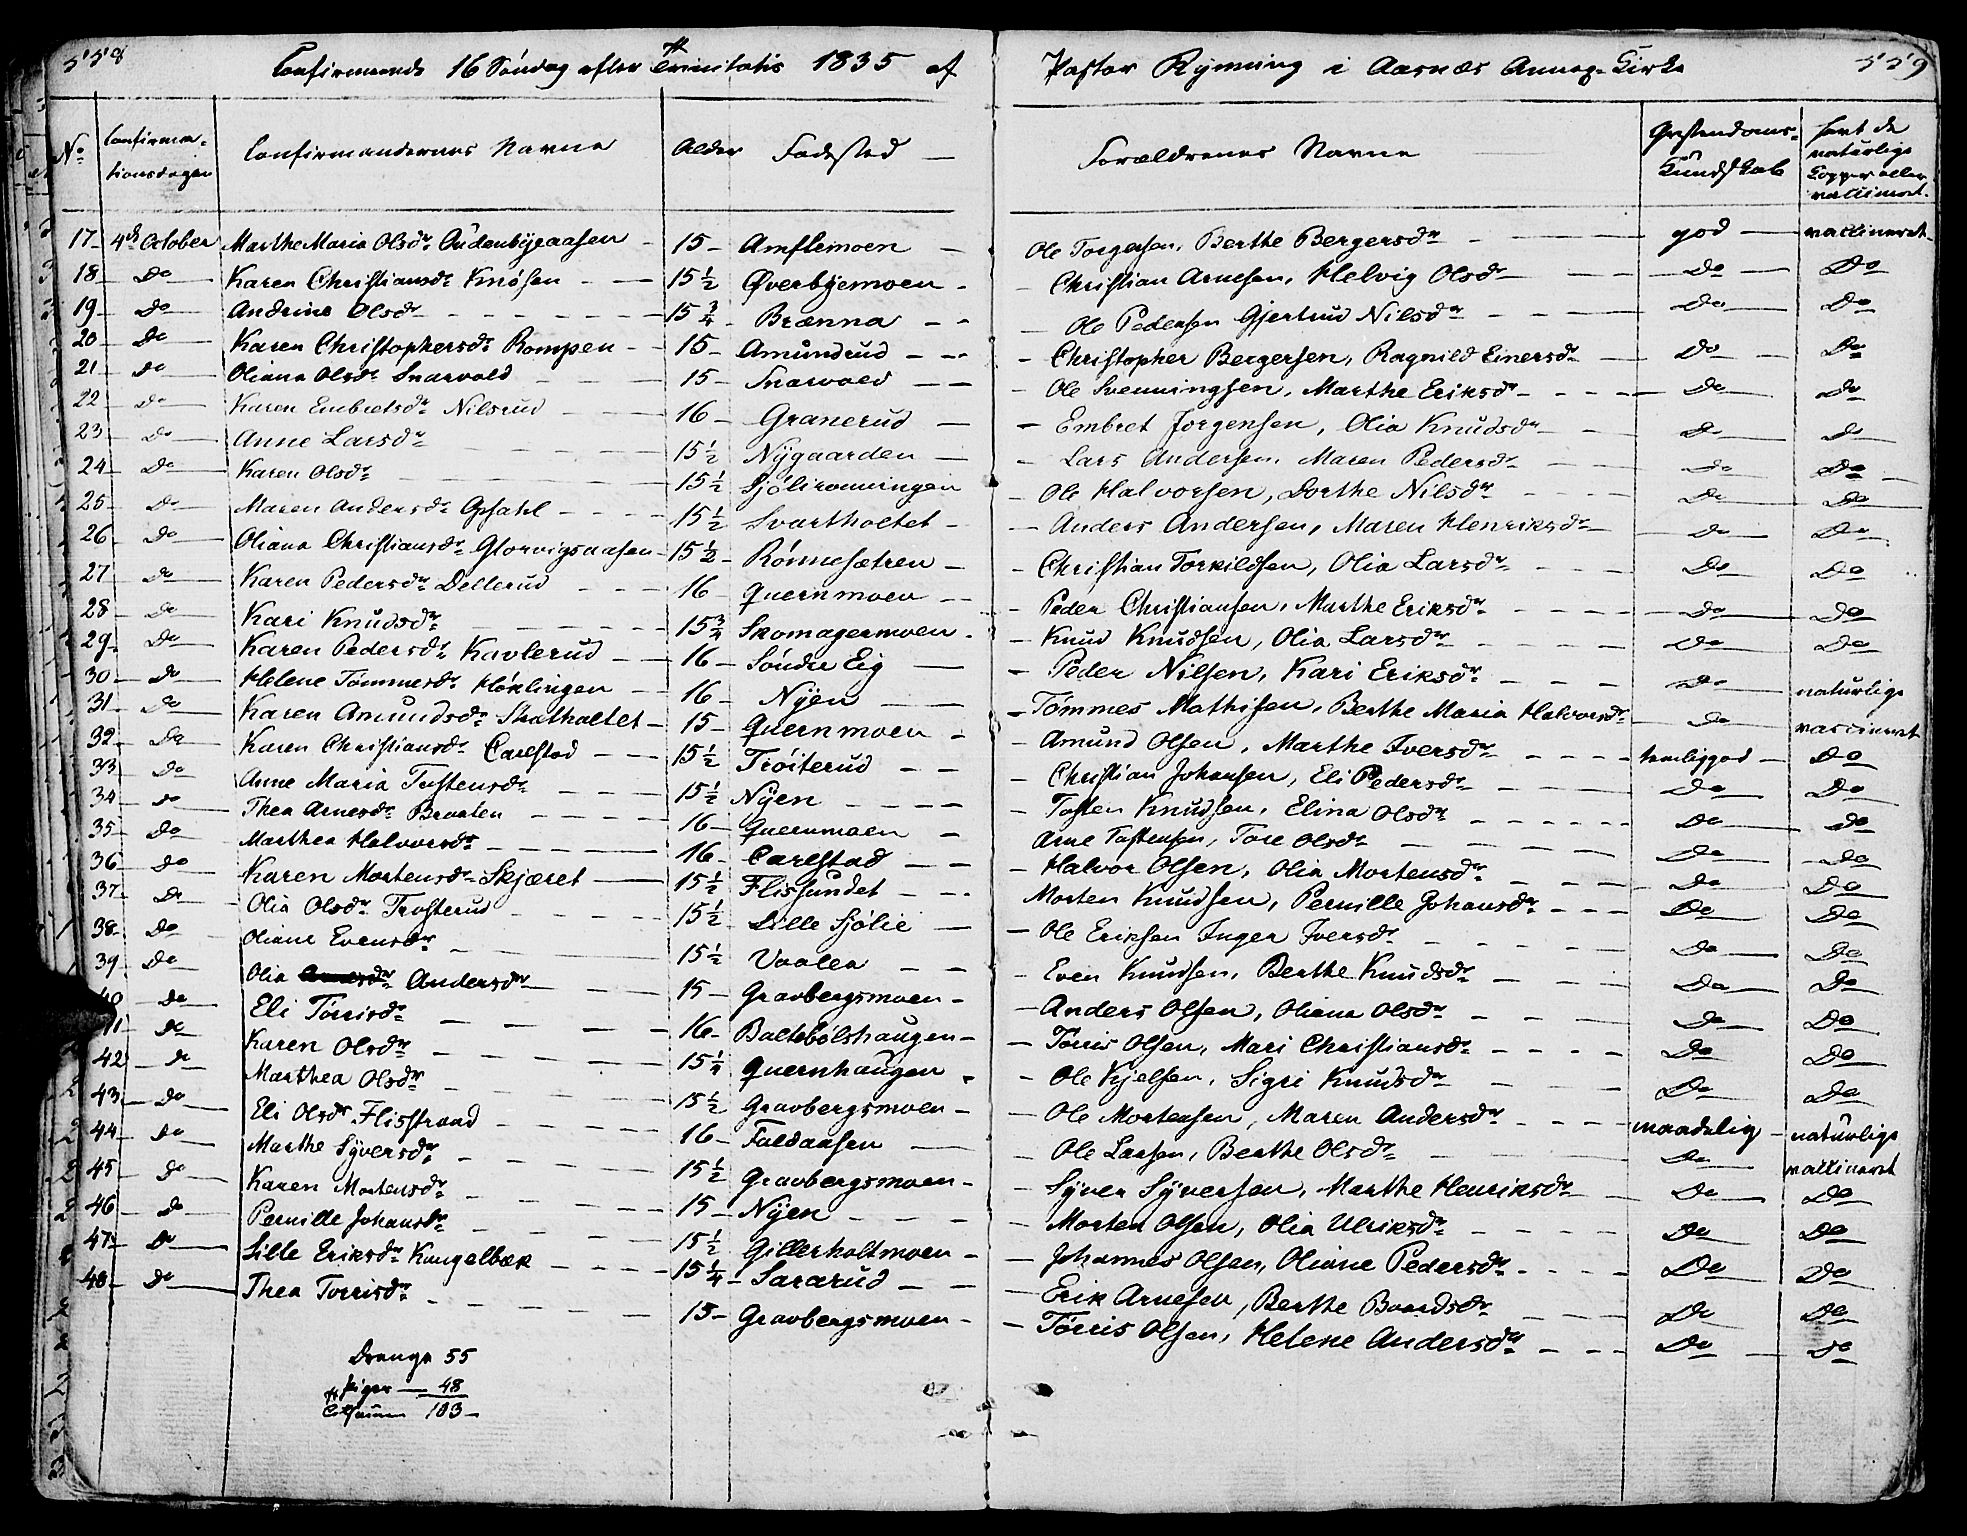 558
Confirmerede 16 Søndag efter Trinitatis 1835 af Pastor Rynning i Aasnæs Annex-Kirke
559
No Confirma-tionsdagen Confirmandernes Navne Alder Fødested Forældrenes Navne Christendoms-Kundskab havt de naturlige Kopper eller vaccineret.
17 4de October Marthe Maria Olsdr Audenbyeaasen 15 Amflemoen Ole Torgersen, Berthe Bergersdr god vaccineret
18 Do Karen Christiansdr Knøsen 15 1/2 Øverbyemoen Christian Arnesen, Helvig Olsdr Do Do
19 Do Andrine Olsdr 15 3/4 Brænna Ole Pedersen Gjertrud Nilsdr Do Do
20 Do Karen Christophersdr Rompen 15 Amundrud Christopher Bergersen, Ragnild Einersdr Do Do
21 Do Oliana Olsdr Snarvold 15 Snarvold Ole Svenningsen, Marthe Eriksdr Do Do
22 Do Karen Embretsdr Nilsrud 16 Granerud Embret Jørgensen, Olia Knudsdr Do Do
23 Do Anne Larsdr 15 1/2 Nygaarden Lars Andersen, Maren Pedersdr Do Do
24 Do Karen Olsdr 15 1/2 Sjøliromningen Ole Halvorsen, Dorthe Nilsdr Do Do
25 Do Maren Andersdr Opsahl 15 1/2 Svartholtet Anders Andersen, Maren Henriksdr Do Do
26 Do Oliana Christiansdr Glorvigsaasen 15 1/2 Rønnesætren Christian Torkildsen, Olia Larsdr Do Do
27 Do Karen Pedersdr Dellerud 16 Quernmoen Peder Christiansen, Marthe Eriksdr Do Do
28 Do Kari Knudsdr 15 3/4 Skomagermoen Knud Knudsen, Olia Larsdr Do Do
29 Do Karen Pedersdr Kavlerud 16 Søndre Eig Peder Nilsen, Kari Eriksdr Do naturlige
30 Do Helene Tømmesdr Høklingen 16 Nyen Tømmes Mathisen, Berthe Maria Halvorsdr Do vaccineret
31 Do Karen Amundsdr Skatholtet 15 Quernmoen Amund Olsen, Marthe Iversdr temliggod Do
32 Do Karen Christiansdr Carlstad 15 1/2 Trøiterud Christian Johansen, Eli Pedersdr Do Do
33 Do Anne Maria Tostensdr 15 1/2 Nyen Tosten Knudsen, Elina Olsdr Do Do
34 Do Thea Arnesdr Braaten 16 Quernmoen Arne Tostensen, Tore Olsdr Do Do
35 Do Marthea Halvorsdr 16 Carlstad Halvor Olsen, Olia Mortensdr Do Do
36 Do Karen Mortensdr Skjæret 15 1/2 Flissundet Morten Knudsen, Pernille Johansdr Do Do
37 Do Olia Olsdr Trosterud 15 1/2 Lille Sjølie Ole Eriksen Inger Iversdr Do Do
38 Do Oliane Evensdr 15 1/2 Vaalea Even Knudsen, Berthe Knudsdr Do Do
39 Do Olia Andersdr 15 Gravbergsmoen Anders Olsen, Oliana Olsdr Do Do
40 Do Eli Tørrisdr 16 Baltebølshaugen Tørris Olsen, Mari Christiansdr Do Do
41 Do Karen Olsdr 15 1/4 Quernhaugen Ole Kjelsen, Sigri Knudsdr Do Do
42 Do Marthea Olsdr 15 1/2 Gravbergsmoen Ole Mortensen, Maren Andersdr maadelig naturlige
43 Do Eli Olsdr Flisstrand 16 Faldaasen Ole Larsen, Berthe Olsdr Do vaccineret
44 Do Marthe Syversdr 15 1/2 Gravbergsmoen Syver Syversen, Marthe Henriksdr Do Do
45 Do Karen Mortensdr 15 Nyen Morten Olsen, Olia Ulriksdr Do Do
46 Do Pernille Johansdr 15 1/2 Gillerholtmoen Johannes Olsen, Oliane Pedersdr Do Do
47 Do Lille Eriksdr Kungelbæk 15 1/4 Sararud Erik Arnesen, Berthe Baardsdr Do Do
48 Do Thea Torrisdr 15 Gravbergsmoen Tørris Olsen, Helene Andersdr Do Do
Drenge 55
Piger 48
Tilsammen 103